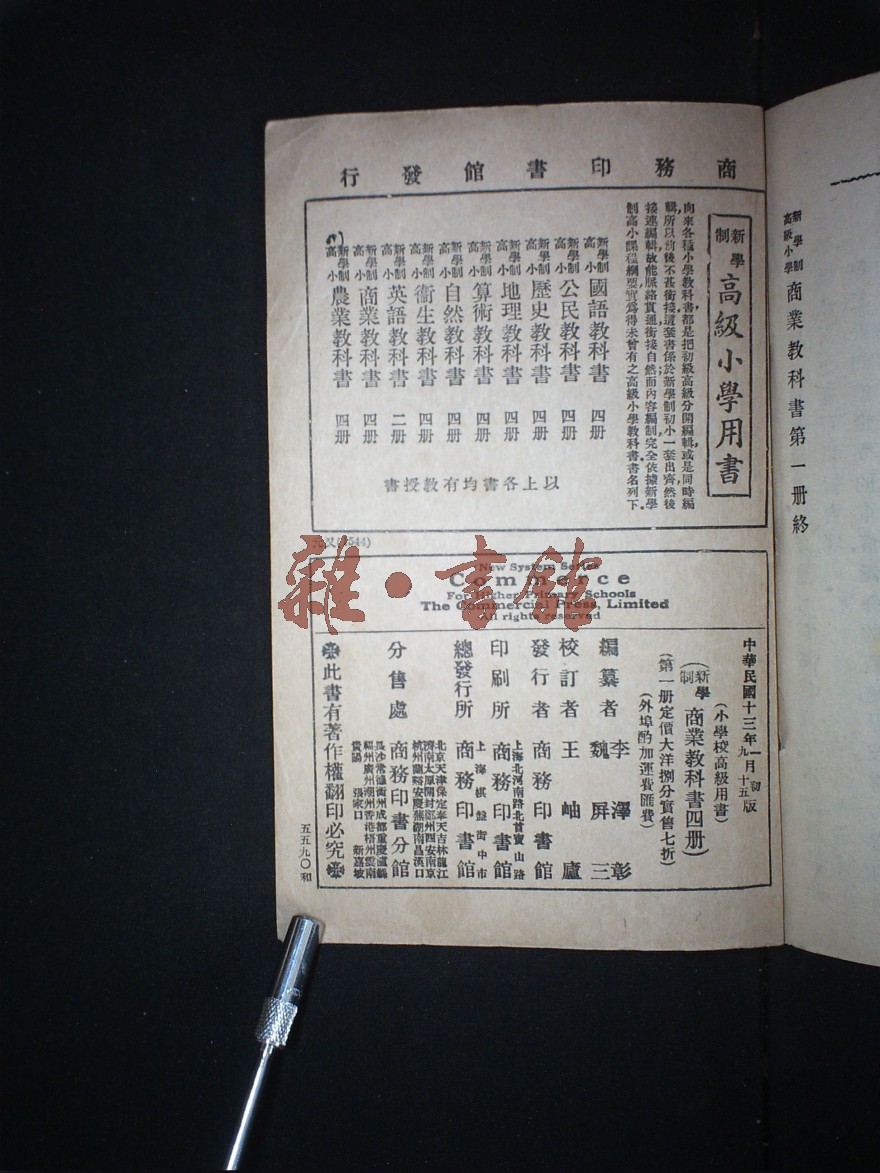 新學制高級小學商業教科書第一册終
商務印書館發行
新學制高級小學用書
向來各種小學教科書，都是把初級高級分開編輯，或是同時編
輯，所以前後不甚銜接，這套書係於新學制初小一套出齊然後
接連編輯，故能脈絡貫通，銜接自然，而內容編制，完全依據新學
制高小課程綱要，實為得未曾有之高級小學教科書，書名列下
新學制高小 國語教科書 四册
新學制高小 公民教科書 四册
新學制高小 歷史教科書 四册
新學制高小 地理教科書 四册
新學制高小 算術教科書 四册
新學制高小 自然教科書 四册
新學制高小 衞生教科書 四册
新學制高小 英語教科書 二册
新學制高小 商業教科書 四册
新學制高小 農業教科書 四册
以上各書均有教授書
New System Series
Commerce
For Higher Primary Schools
The Commercial Press, Limited
All rights reserved
中華民國十三年一月初版
九 十五
(小學校高級用書)
(新學制商業教科書四册)
(第一册定價大洋捌分實售七折)
(外埠酌加運費匯費)
編纂者 李澤彰 魏屏三
校訂者 王岫廬
發行者 商務印書館
印刷所 上海北河南路北首寶山路 商務印書館
總發行所 上海棋盤街中市 商務印書館
分售處 商務印書分館
北京天津保定奉天吉林龍江
濟南太原開封鄭州西安南京
杭州蘭谿安慶蕪湖南昌漢口
長沙常德衡州成都重慶瀘縣
福州廣州潮州香港梧州雲南
貴陽 張家口 新嘉坡
此書有著作權翻印必究
五五九〇和
雜·書館